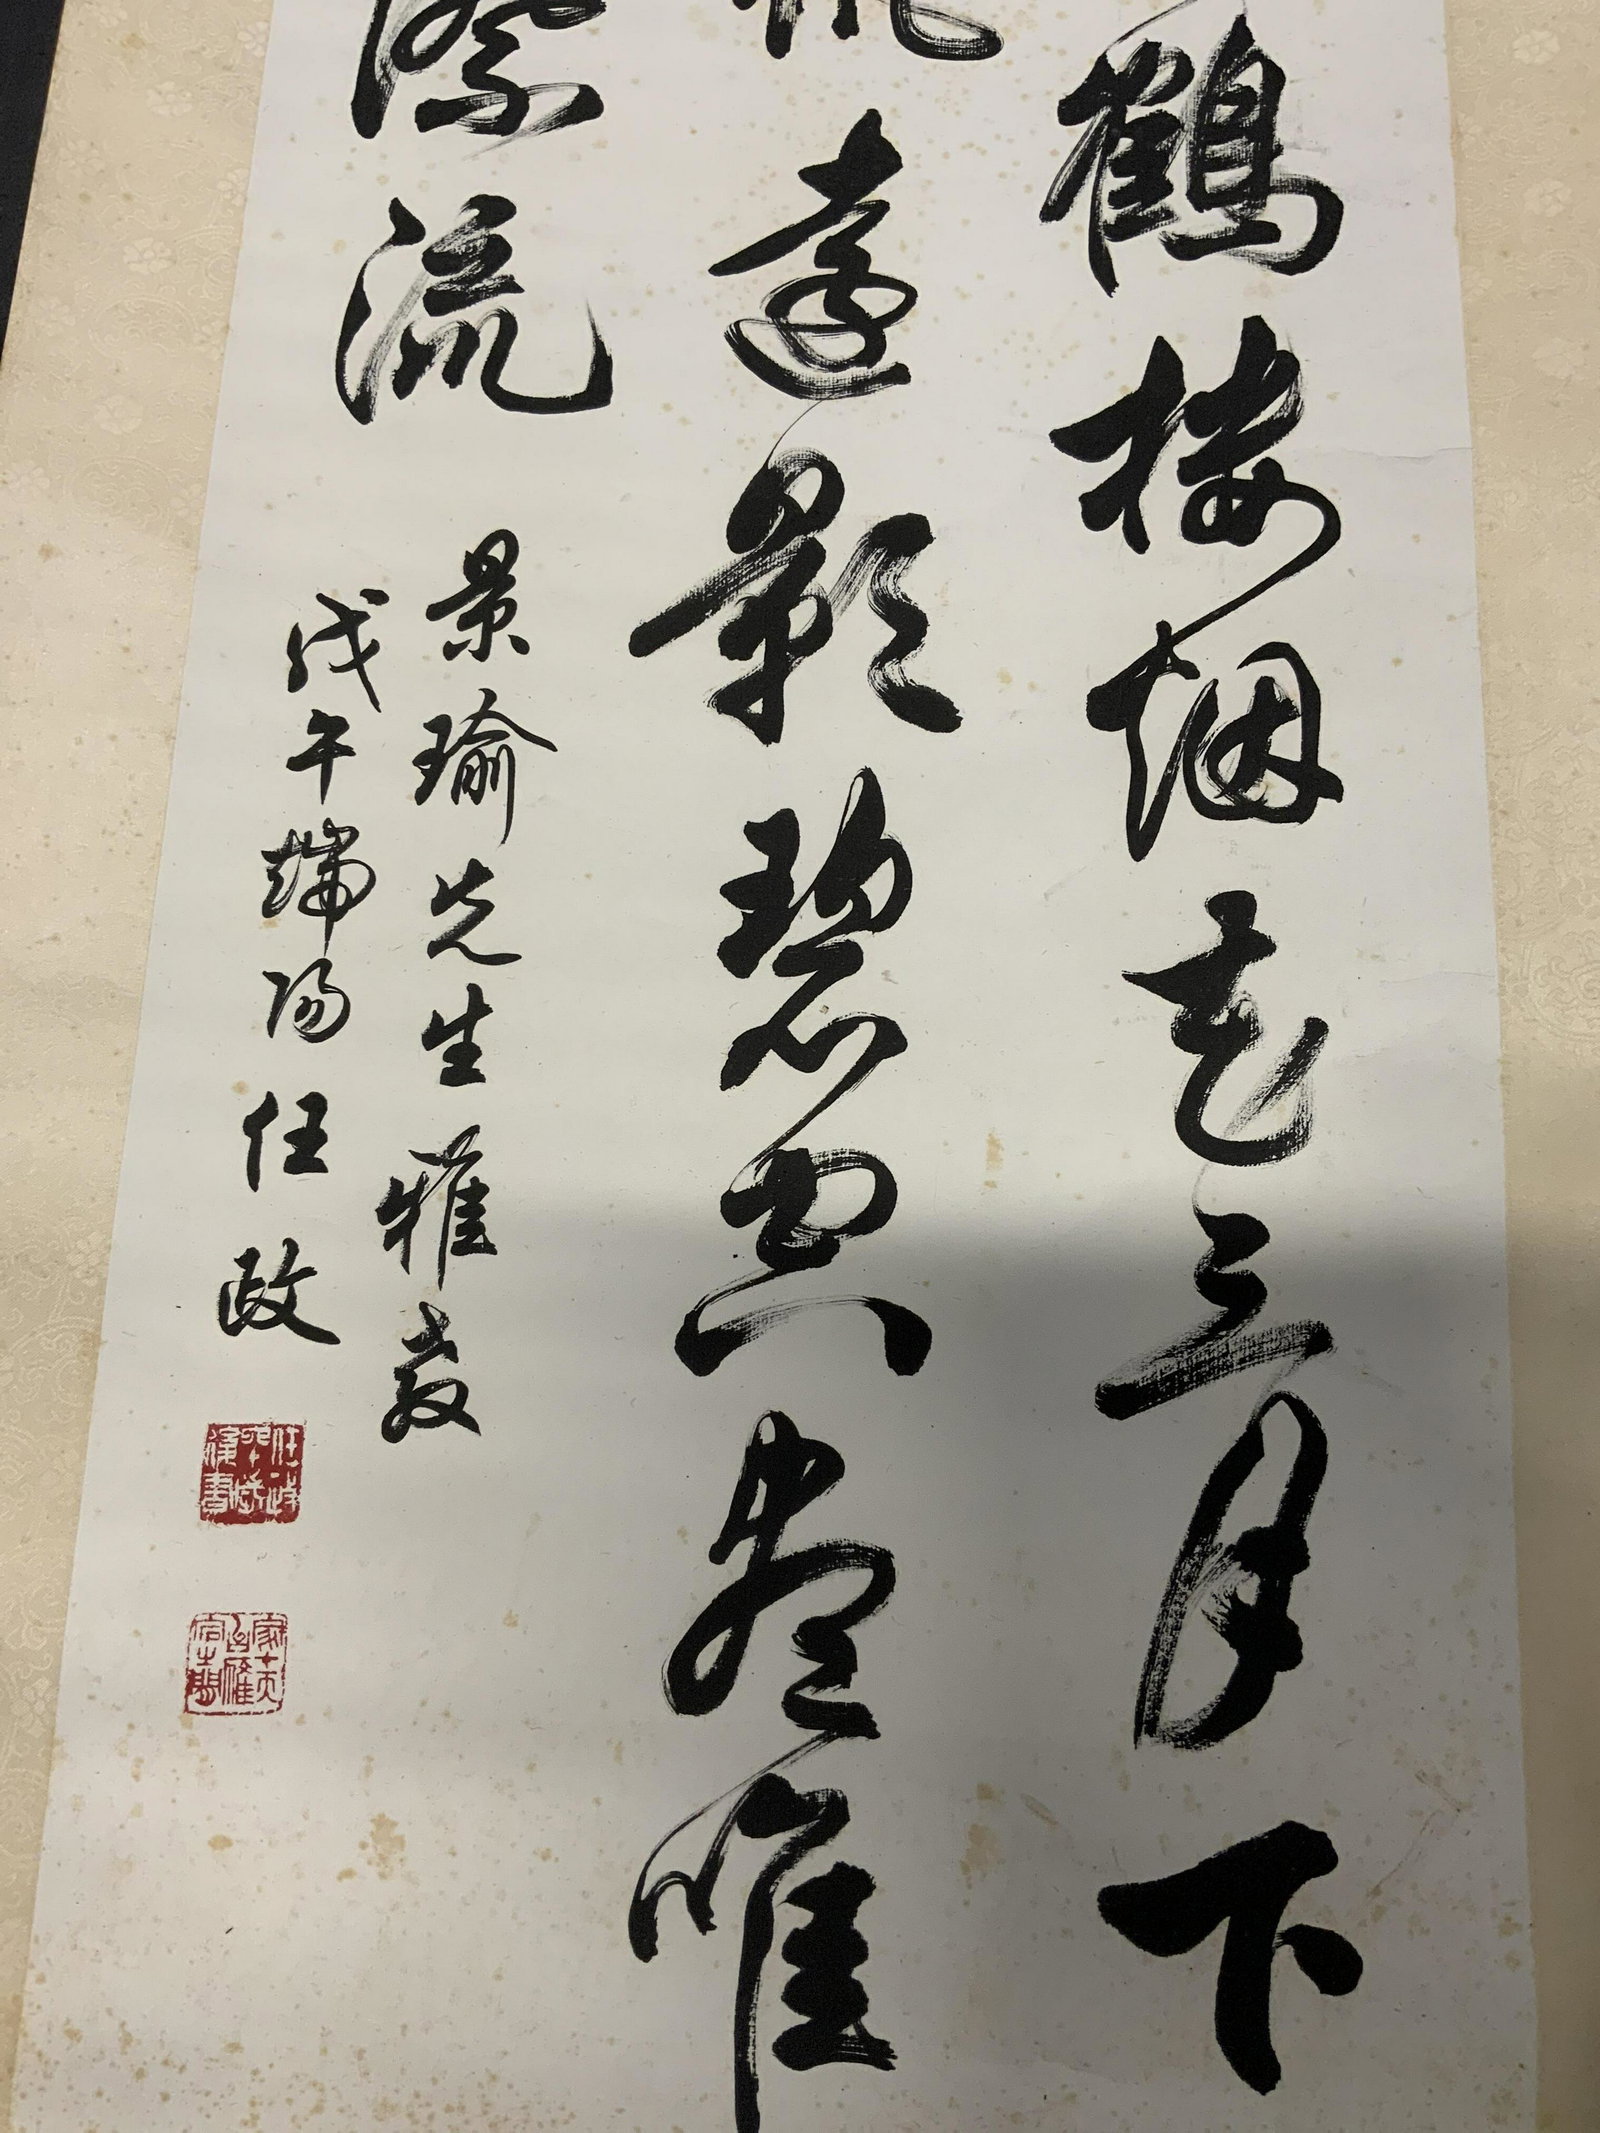 鶴樓烟花三月下
帆遠影碧空盡唯
際流
景瑜先生雅教
戊午端陽 任政